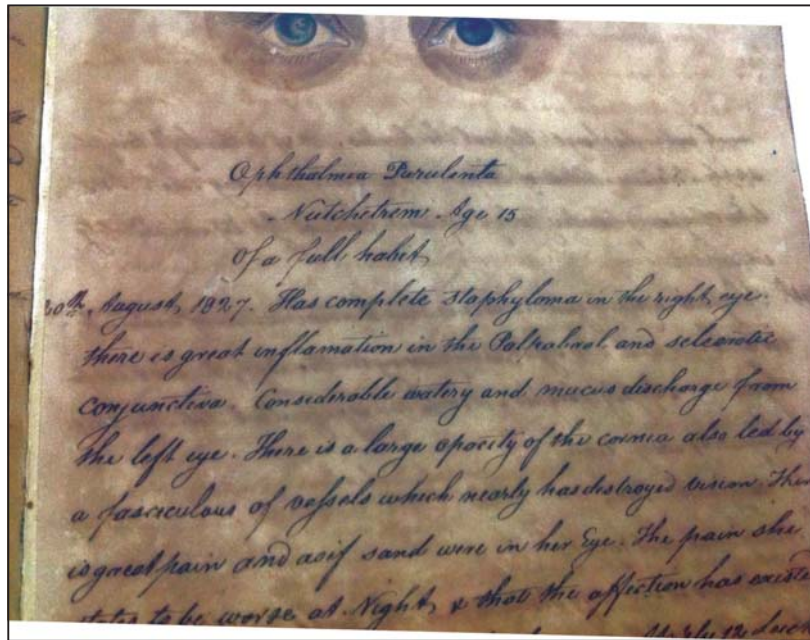 Ophthalmia Purulenta
Nutchetrem. Age 15
Of a full habit
30th. August, 1827. Has complete staphyloma in the right eye.
there is great inflamation in the Palpabral and sclerotic
conjunctiva. Considerable watery and mucus discharge from
the left eye. There is a large opacity of the cornea also led by
a fasciculous of vessels which nearly has destroyed vision. There
is great pain and as if sand were in her Eye. The pain she
states to be worse at Night, & that the affection has existed